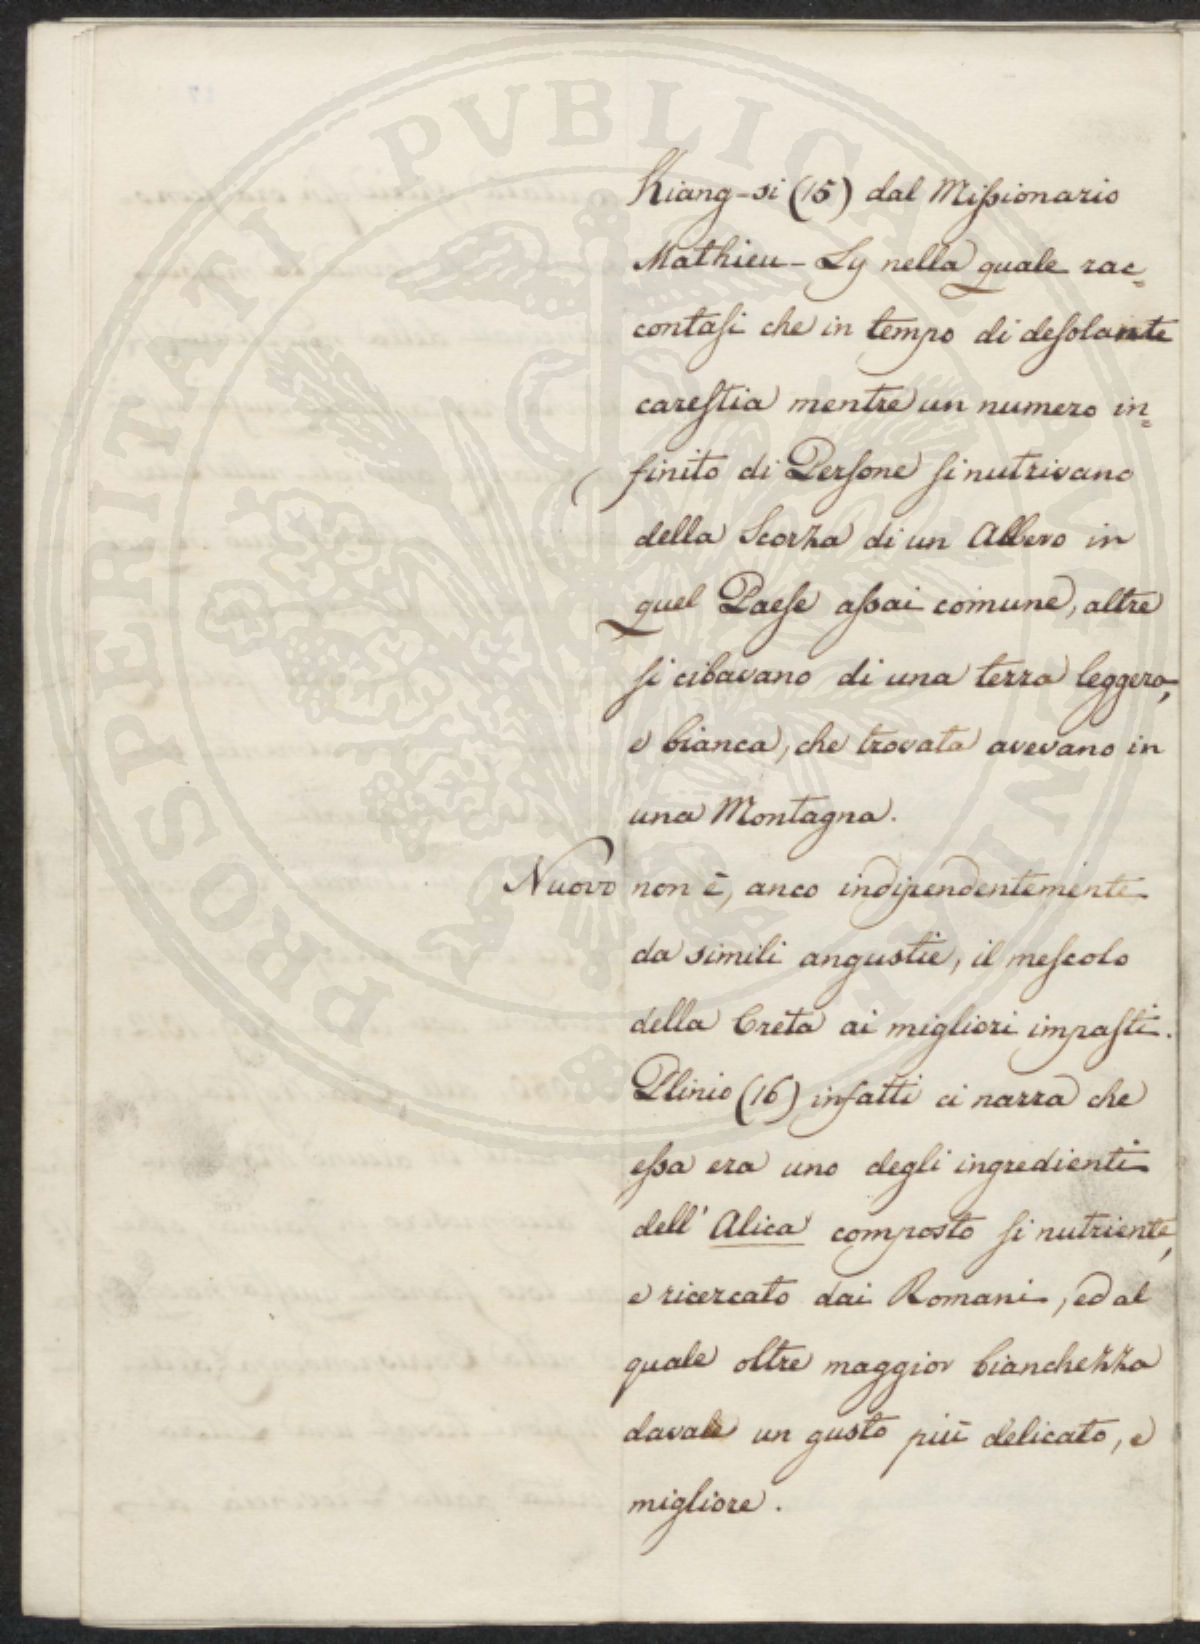 Kiang-si (15) dal Missionario
Mathieu-Ly nella quale rac=
contasi che in tempo di desolante
carestia mentre un numero in=
finito di Persone si nutrivano
della Scorza di un Albero in
quel Paese assai comune, altre
si cibavano di una terra leggera,
e bianca, che trovata avevano in
una Montagna.
Nuovo non è, anco indipendentemente
da simili angustie, il mescolo
della Creta ai migliori impasti.
Plinio (16) infatti ci narra che
essa era uno degli ingredienti
dell' Alica composto si nutriente,
e ricercato dai Romani, ed al
quale oltre maggior bianchezza
davale un gusto più delicato, e
migliore.
PROSPERITATI PVBLICAE